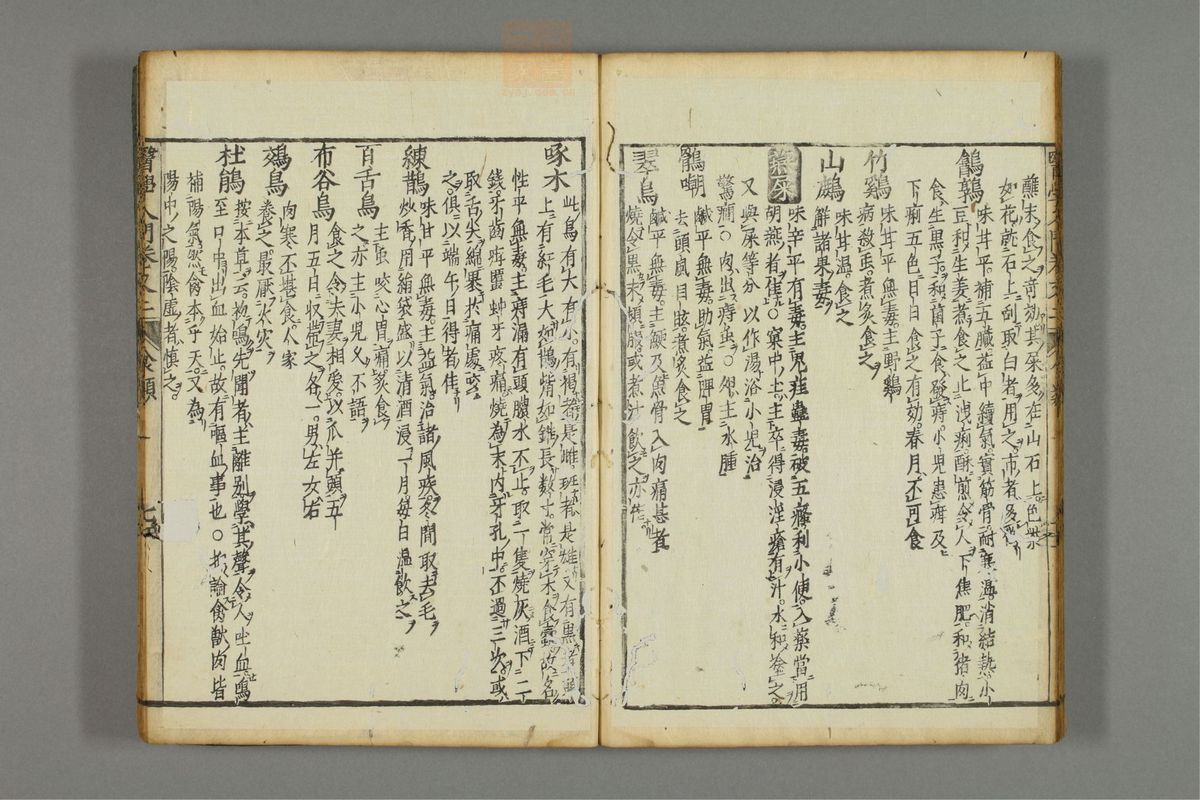 蘸末食之奇効其屎多在山石上色
如花蕋石上刮取白者用之市者多
鷓鴣味甘平補五臟益中續氣實筋骨耐寒温消結熱小
豆和生姜煮食之止洩痢酥煎令人下焦肥和猪肉
食生黒子和菌子食發痔小児患疳及
下痢五色旦日食之有効春月不可食
竹鷄味甘平無毒主野鷄
病殺䖝煮炙食之
山鷓味甘温食之
觧諸果毒
鷰屎味辛平有毒主児疰蠱毒破五癃利小便入藥當用
胡燕者佳○窠中土主卒得浸淫瘡有汁水和塗之
又與屎等分以作湯浴小児治
驚癇○肉出痔䖝○夘主水腫
鶻嘲鹹平無毒助氣益脾胃
去頭風目眩煮炙食之
翠鳥鹹平無毒主鯁及魚骨入肉痛甚者
燒令黒末頓服或煮汁飲之亦佳
啄木此鳥有大有小有褐者是雌斑者是雄又有黒者
上有紅毛大如鵲觜如錐長数寸常穿木食蠧故名
性平無毒主痔漏有頭膿水不止取一隻燒灰酒下二
錢牙齒疳䘌蚛牙疼痛燒為末内牙孔中不過三次或
取舌尖綿裹於痛處咬
之俱以端午日得者佳
練鵲味甘平無毒主益氣治諸風疾冬間取去毛
炒香用絹袋盛以清酒浸一月毎日温飲之
百舌鳥主䖝咬心胃痛炙食
之亦主小児乆不語
布谷鳥食之令夫妻相愛以爪并頭五
月五日收帶之各一男左女右
鴆鳥肉寒不堪食人家
養之最厭火灾
杜鵑按本草云初鳴先聞者主離別學其聲令人吐血鳴
至口中出血始止故有嘔血事也○抑論禽獸肉皆
補陽氣然禽本乎天又為
陽中之陽陰虚者慎之
醫學入門卷之二 食類 七